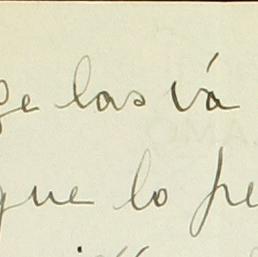 ge las vá
que lo pe